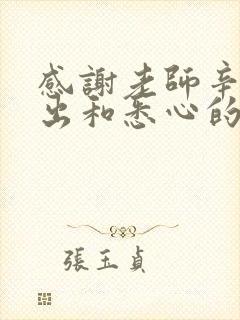 感謝老師辛
出和悉心的
張玉貞